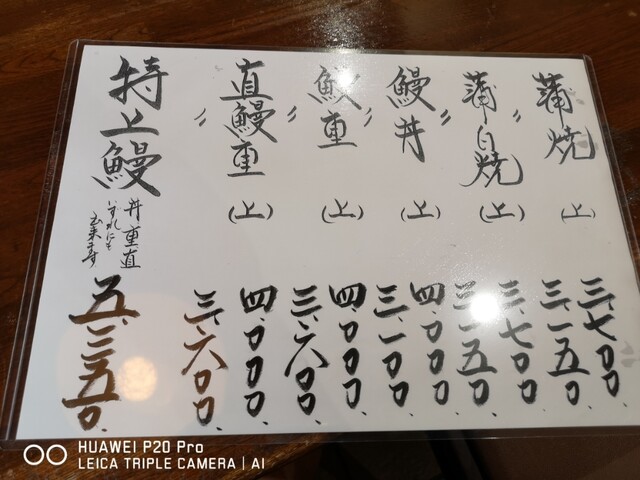 蒲焼 (上) 三、七〇〇、
〃 三、一五〇、
蒲白焼 (上) 三、七〇〇、
〃 三、一五〇、
鰻丼 (上) 四、〇〇〇、
〃 三、一〇〇、
鰻重 (上) 四、〇〇〇、
〃 三、六〇〇、
直鰻重 (上) 四、〇〇〇、
〃 三、六〇〇、
特上鰻
丼重直
いずれにも
出来ます
五、二五〇、
HUAWEI P20 Pro
LEICA TRIPLE CAMERA | AI